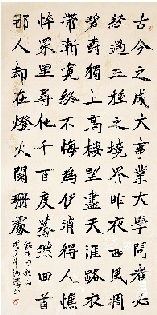 古今之成大事業大學問者必
經過三種之境界昨夜西風凋
碧樹獨上高樓望盡天涯路衣
帶漸寬終不悔為伊消得人憔
悴眾里尋他千百度驀然回首
那人却在燈火闌珊處